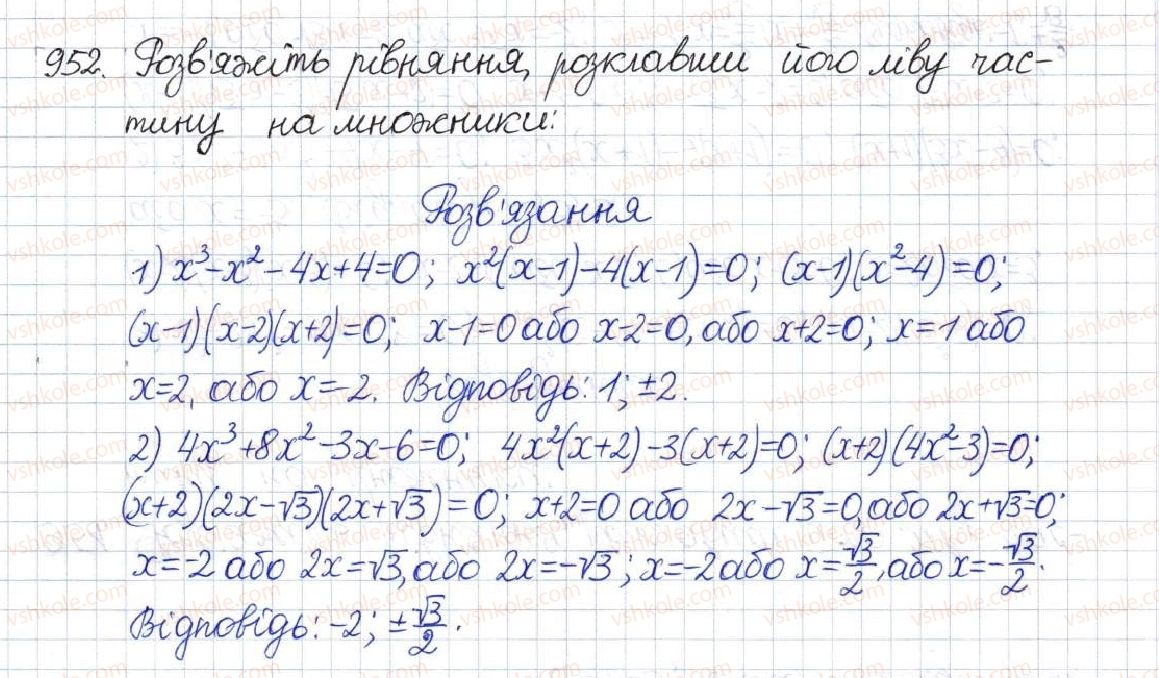 952. Розв'яжіть рівняння, розклавши його ліву час-
тину на множники:
Розв'язання
1) x³-x²-4x+4=0; x²(x-1)-4(x-1)=0; (x-1)(x²-4)=0;
(x-1)(x-2)(x+2)=0; x-1=0 або x-2=0, або x+2=0; x=1 або
x=2, або x=-2. Відповідь: 1; ±2.
2) 4x³+8x²-3x-6=0; 4x²(x+2)-3(x+2)=0; (x+2)(4x²-3)=0;
(x+2)(2x-√3)(2x+√3)=0; x+2=0 або 2x-√3=0, або 2x+√3=0;
x=-2 або 2x=√3, або 2x=-√3; x=-2 або x=√3/2, або x=-√3/2.
Відповідь: -2; ±√3/2.